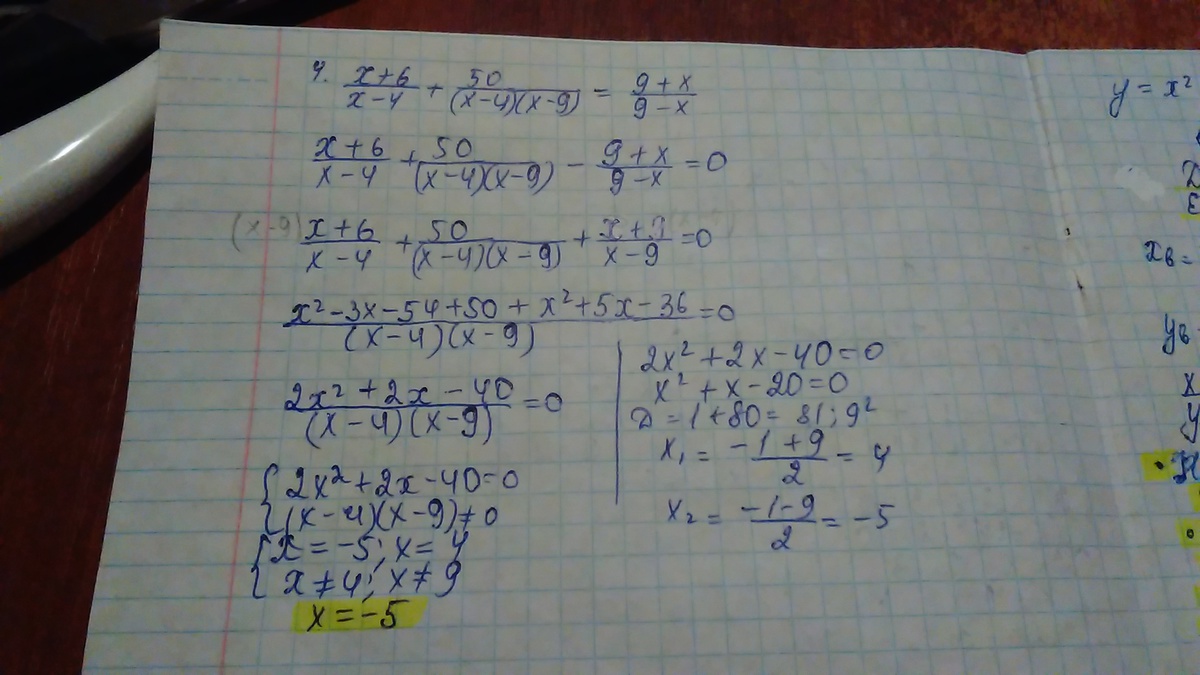 4. (x+6)/(x-4) + 50/((x-4)(x-9)) = (9+x)/(9-x)
(x+6)/(x-4) + 50/((x-4)(x-9)) - (9+x)/(9-x) = 0
(x-9) (x+6)/(x-4) + 50/((x-4)(x-9)) + (x+9)/(x-9) = 0
(x²-3x-54+50+x²+5x-36)/((x-4)(x-9)) = 0
(2x²+2x-40)/((x-4)(x-9)) = 0
{ 2x²+2x-40=0
{ (x-4)(x-9)≠0
{ x=-5; x=4
{ x≠4; x≠9
x=-5
2x²+2x-40=0
x²+x-20=0
D=1+80=81; 9²
x₁ = (-1+9)/2 = 4
x₂ = (-1-9)/2 = -5
y=x²
D
E
xв=
yв
x
y